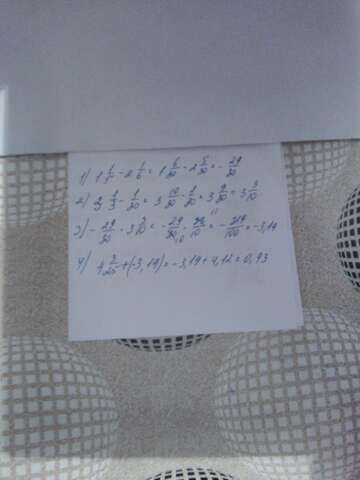 1) 1 1/5 - 2 1/6 = 1 6/30 - 2 5/30 = - 29/30
2) 3 1/3 - 1/30 = 3 10/30 - 1/30 = 3 9/30 = 3 3/10
3) - 29/30 · 3 3/10 = - 29/30 · 33/10 = - 319/100 = -3,19
4) 4 3/25 + (-3,19) = -3,19 + 4,12 = 0,93